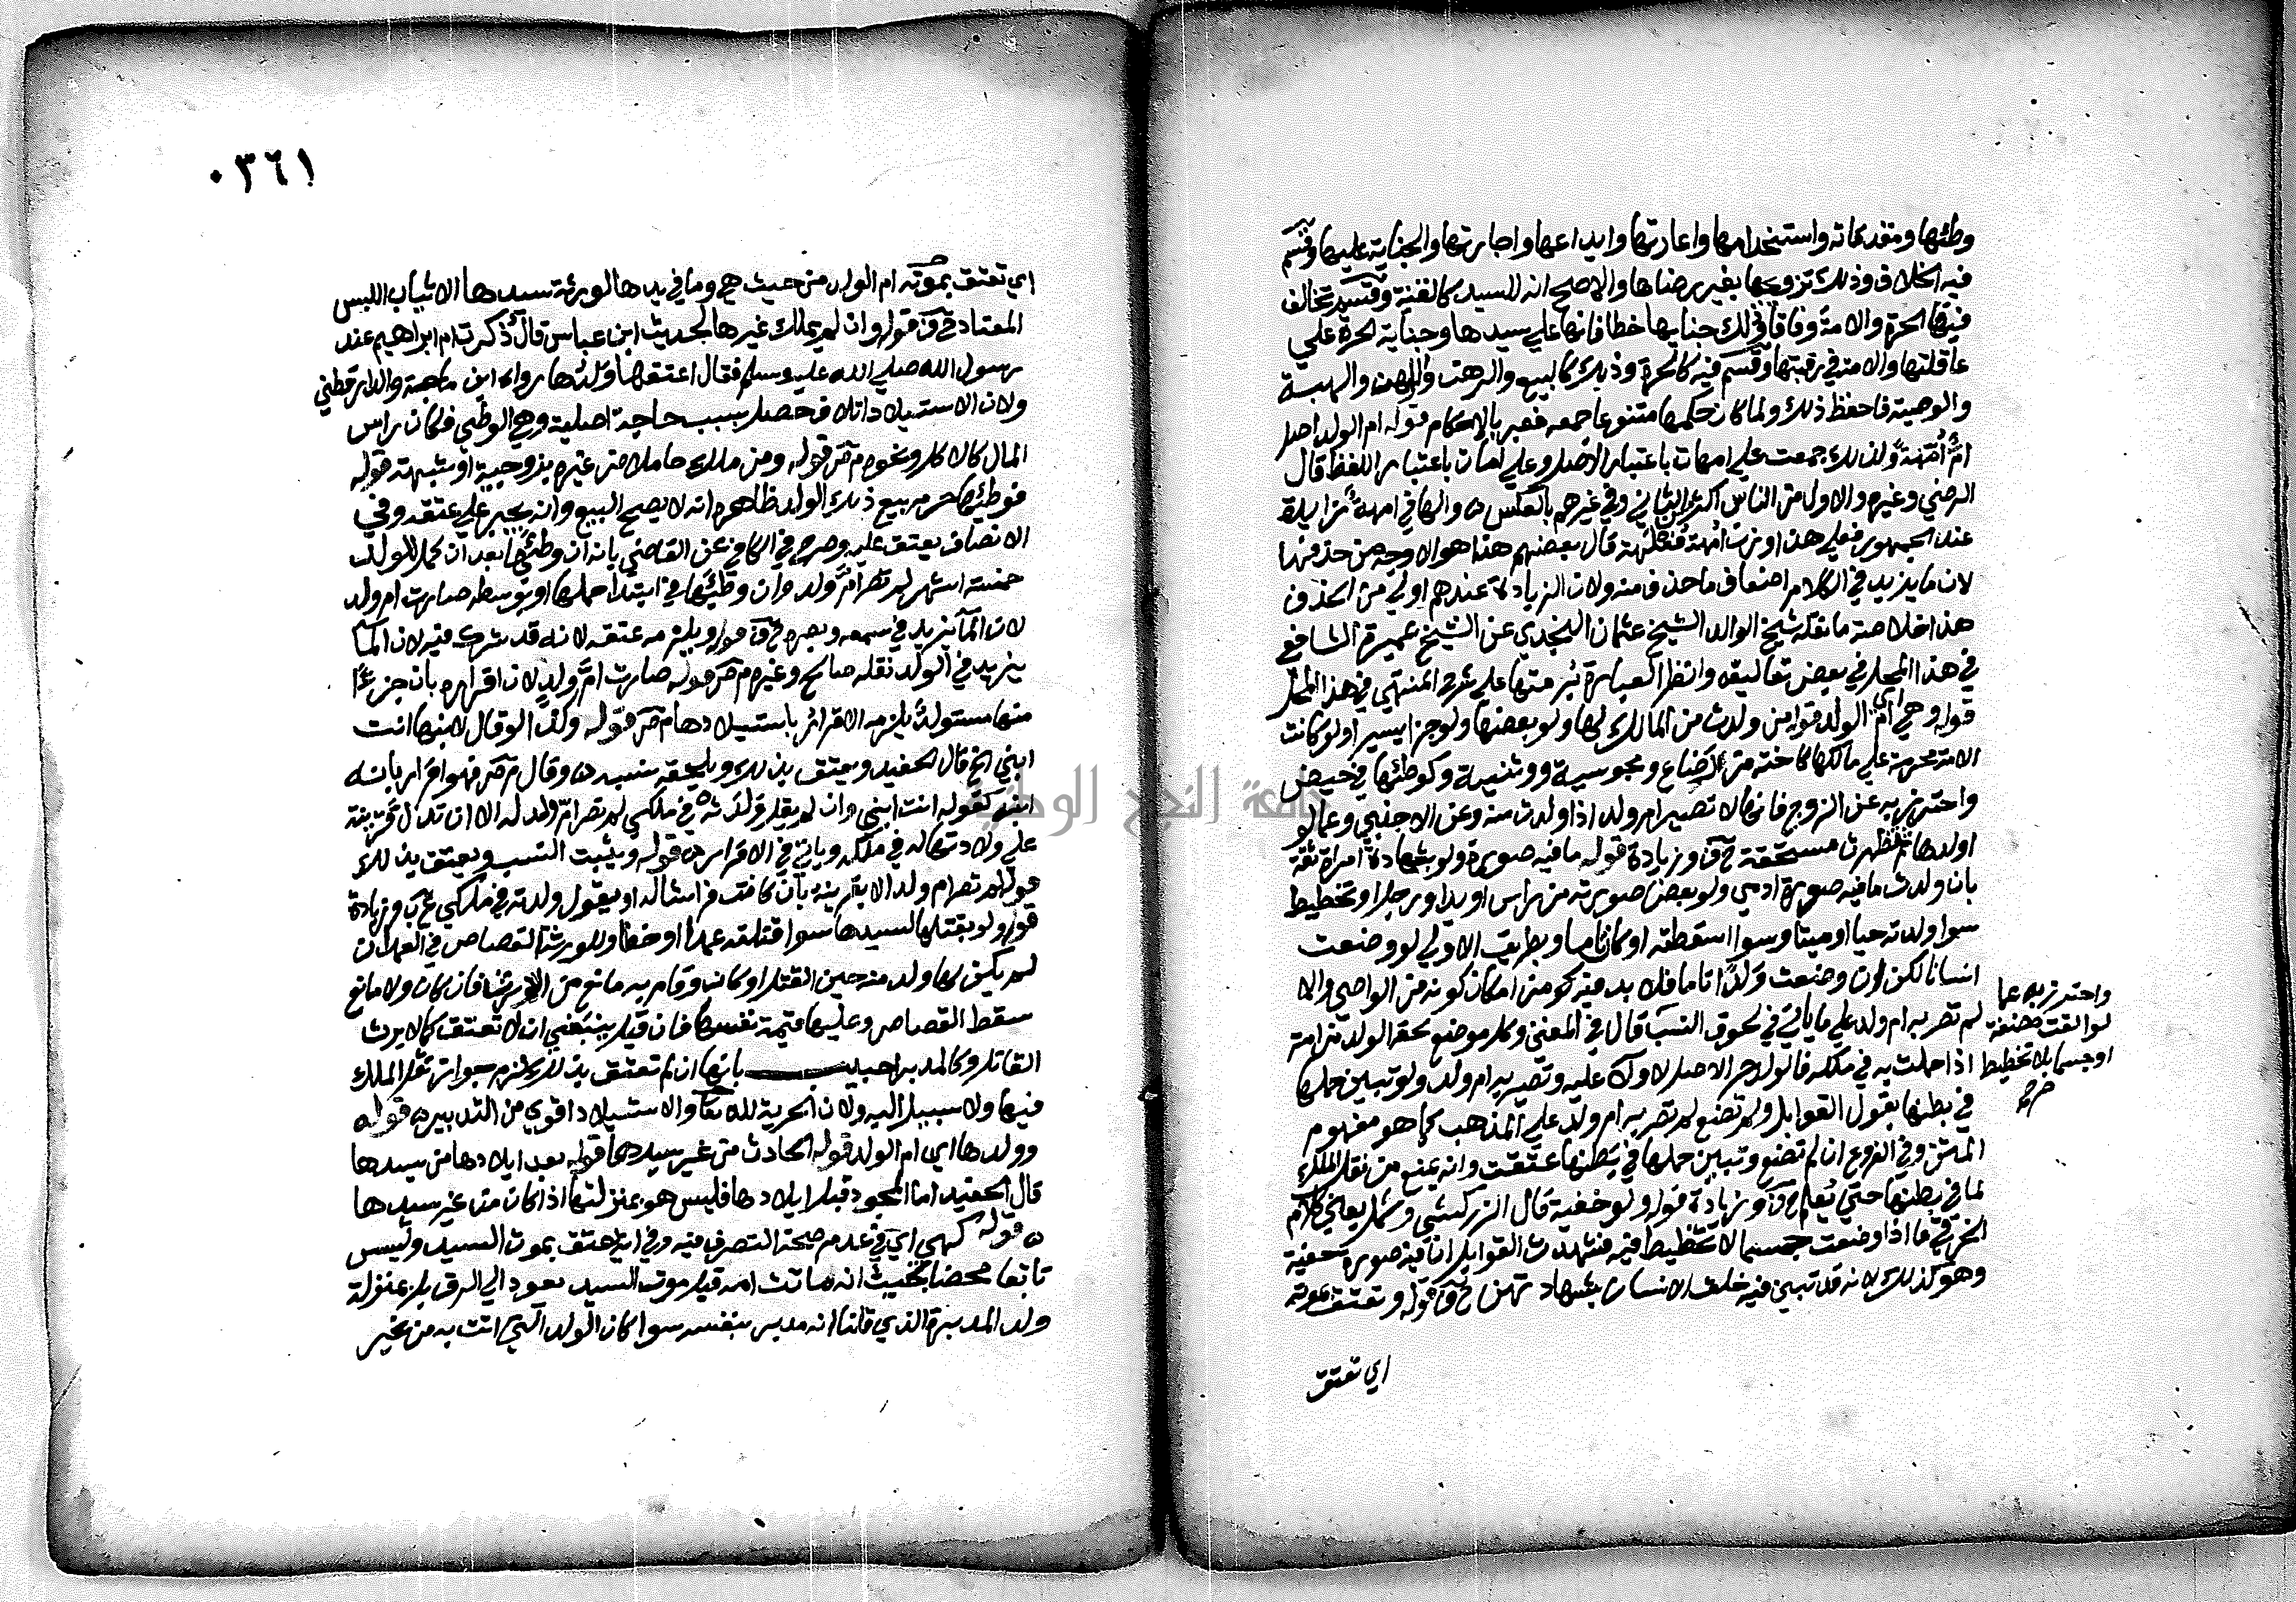 وطئها ومقدماته واستخدامها واعارتها وايداعها واجارتها والجناية عليها وقسم
فيه الخلاف وذلك تزويجها بغير رضاها والاصح انه للسيد كالقنة وقسم تخالف
فيها الحرة والامة وفاقا وذلك جنايتها خطا فانها علي سيدها وجناية الحرة علي
عاقلتها والامة في رقبتها وقسم فيه كالحرة وذلك كالبيع والرهن والهبة
والوصية فاحفظ ذلك ولما كان حكمها متنوعا جمعه فعبر بالاحكام قوله ام الولد اصل
ام امهة ولذلك جمعت علي امهات باعتبار الاصل وعلي امات باعتبار اللفظ قال
الرضي وغيره والاول من الناس اكثر والثاني وفي غيرهم بالعكس والها في امهة زايدة
عند الجمهور فعلي هذا وزن امهة فعلهة قال بعضهم هذا هو الاوجه من حذفها
لان ما يزيد في الكلام اضعاف ما حذف منه ولان الزيادة عندهم اولي من الحذف
هذا خلاصة ما نقله شيخ الوالد الشيخ عثمان النجدي عن الشيخ عميرة الشافعي
في هذا المحل في بعض تعاليقه وانظر العبارة برمتها علي شرح المنتهي في هذا المحل
قوله وهي اي ام الولد قوله من ولدت من المالك لها ولو بعضها ولو جزا يسيرا ولو كانت
الامة محرمة علي مالكها كاخته من الرضاع ومجوسية ووثنية وكوطئها في حيض
واحترز به عن الزوج فانها لا تصير ام ولد اذا ولدت منه وعن الاجنبي وعما لو
اولدها فظهرت مستحقة وزيادة قوله ما فيه صورة ولو بشهادة امراة ثقة
بان ولدت ما فيه صورة ادمي ولو بعض صورته من راس او يد او رجل او تخطيط
سوا ولدته حيا او ميتا وسوا اسقطته او كان تاما وبطريق الاولي لو وضعت
انسانا لكن لو وضعت ولدا تاما فلا بد فيه نحو من امكان كونه من الواطي والا
لم تصر به ام ولد علي ما ياتي في لحوق النسب قال في المغني وكل موضع لحق الولد من امة
اذا حملت به في ملكه فالولد حر الاصل لا ولا عليه وتصير به ام ولد ولو تبين حملها
في بطنها بقول القوابل ولم تضع لم تصر به ام ولد علي المذهب كما هو مفهوم
المتن وفي الفروع ان لم تضع وتبين حملها في بطنها عتقت وانه يمنع من نقل الملك
لما في بطنها حتي يعلم وزيادة قوله ولو خفية قال الزركشي وشمل يعني كلام
الخرقي ما اذا وضعت جسما لا تخطيط فيه فشهدت القوابل ان فيه صورة خفية
وهو كذلك لانه قد تبين فيه خلق الانسان بشهادتهن قوله وتعتق بموته
اي تعتق
واحترز به عما
لو القت مضغة
او جسما بلا تخطيط
٠٣٦١
اي تعتق بموته ام الولد من حيث هي وما في يدها لورثة سيدها الا ثياب اللبس
المعتاد قوله وان لم يملك غيرها لحديث ابن عباس قال ذكرت ام ابراهيم عند
رسول الله صلي الله عليه وسلم فقال اعتقها ولدها رواه ابن ماجة والدارقطني
ولان الاستيلاد اتلاف حصل بسبب حاجة اصلية وهي الوطئ فكان من راس
المال كالاكل ونحوه م ص قوله ومن ملك حاملا من غيره بزوجية او شبهة قوله
فوطئها حرم بيع ذلك الولد ظاهره انه لا يصح البيع وانه يجبر علي عتقه وفي
الانصاف يعتق عليه وصرح في الكافي عن القاضي بانه ان وطئها بعد ان كمل للولد
خمسة اشهر لم تصر ام ولد وان وطئها في ابتدا حملها او توسطه صارت ام ولد
لان الما يزيد في سمعه وبصره قوله ويلزمه عتقه لانه قد شرك فيه لان الما
يزيد في الولد نقله صالح وغيره م ص قوله صارت ام ولد لان اقراره بان جزءا
منها مستولد يلزمه الاقرار باستيلادها م ص قوله وكذا لو قال لابنها انت
ابني الخ قال الحفيد ويعتق بذلك ويلحقه نسبه وقال م ص فهو اقرار بانه
ابنه كقوله انت ابني وان لم يقل ولدته في ملكي لم تصر ام ولد له الا ان تدل قرينة
علي ولادتها له في ملكه وياتي في الاقرار قوله ويثبت النسب ويعتق بذلك
قوله لم تصر ام ولد الا بقرينة بان كانت فراشا له او يقول ولدته في ملكي وزيادة
قوله ولو بقتلها لسيدها سوا قتلته عمدا او خطا وللورثة القصاص في العمد ان
لم يكن لها ولد منه حين القتل او كان وقام به مانع من الارث فان كان ولا مانع
سقط القصاص وعليها قيمة نفسها فان قيل ينبغي ان لا تعتق كما لا يرث
القاتل وكالمدبر اجيب بانها ان لم تعتق بذلك لزم جواز نقل الملك
فيها ولا سبيل اليه ولان الحرية لله تعالي والاستيلاد اقوي من التدبير قوله
وولدها اي ام الولد قوله الحادث من غير سيدها قوله بعد ايلادها من سيدها
قال الحفيد اما الموجود قبل ايلادها فليس هو بمنزلتها اذا كان من غير سيدها
قوله كهي اي في عدم صحة التصرف فيه وفي انه يعتق بموت السيد وليس
تابعا محضا بحيث انه ماتت امه قبل موت السيد يعود الي الرق بل بمنزلة
ولد المدبرة الذي قلنا انه مدبر بنفسه سوا كان الولد اتت به من غير
جامعة النجاح الوطنية